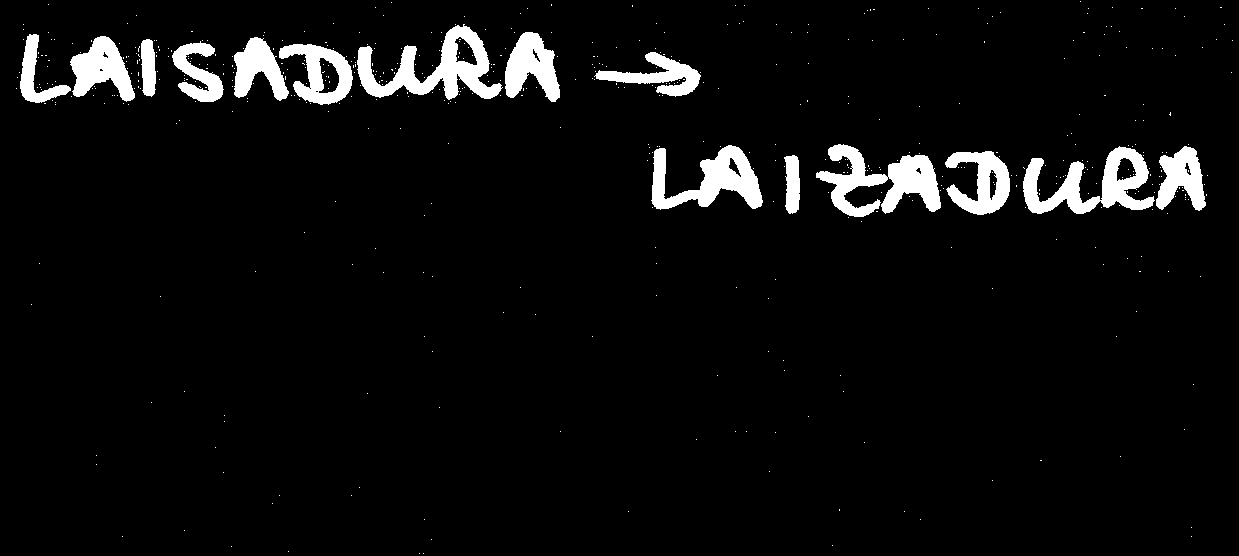 LAISADURA →
LAIZADURA